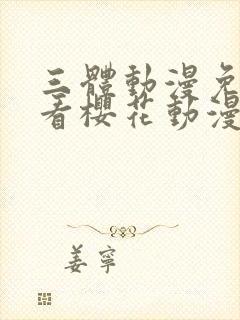 三體動漫免
看櫻花動漫
姜寧